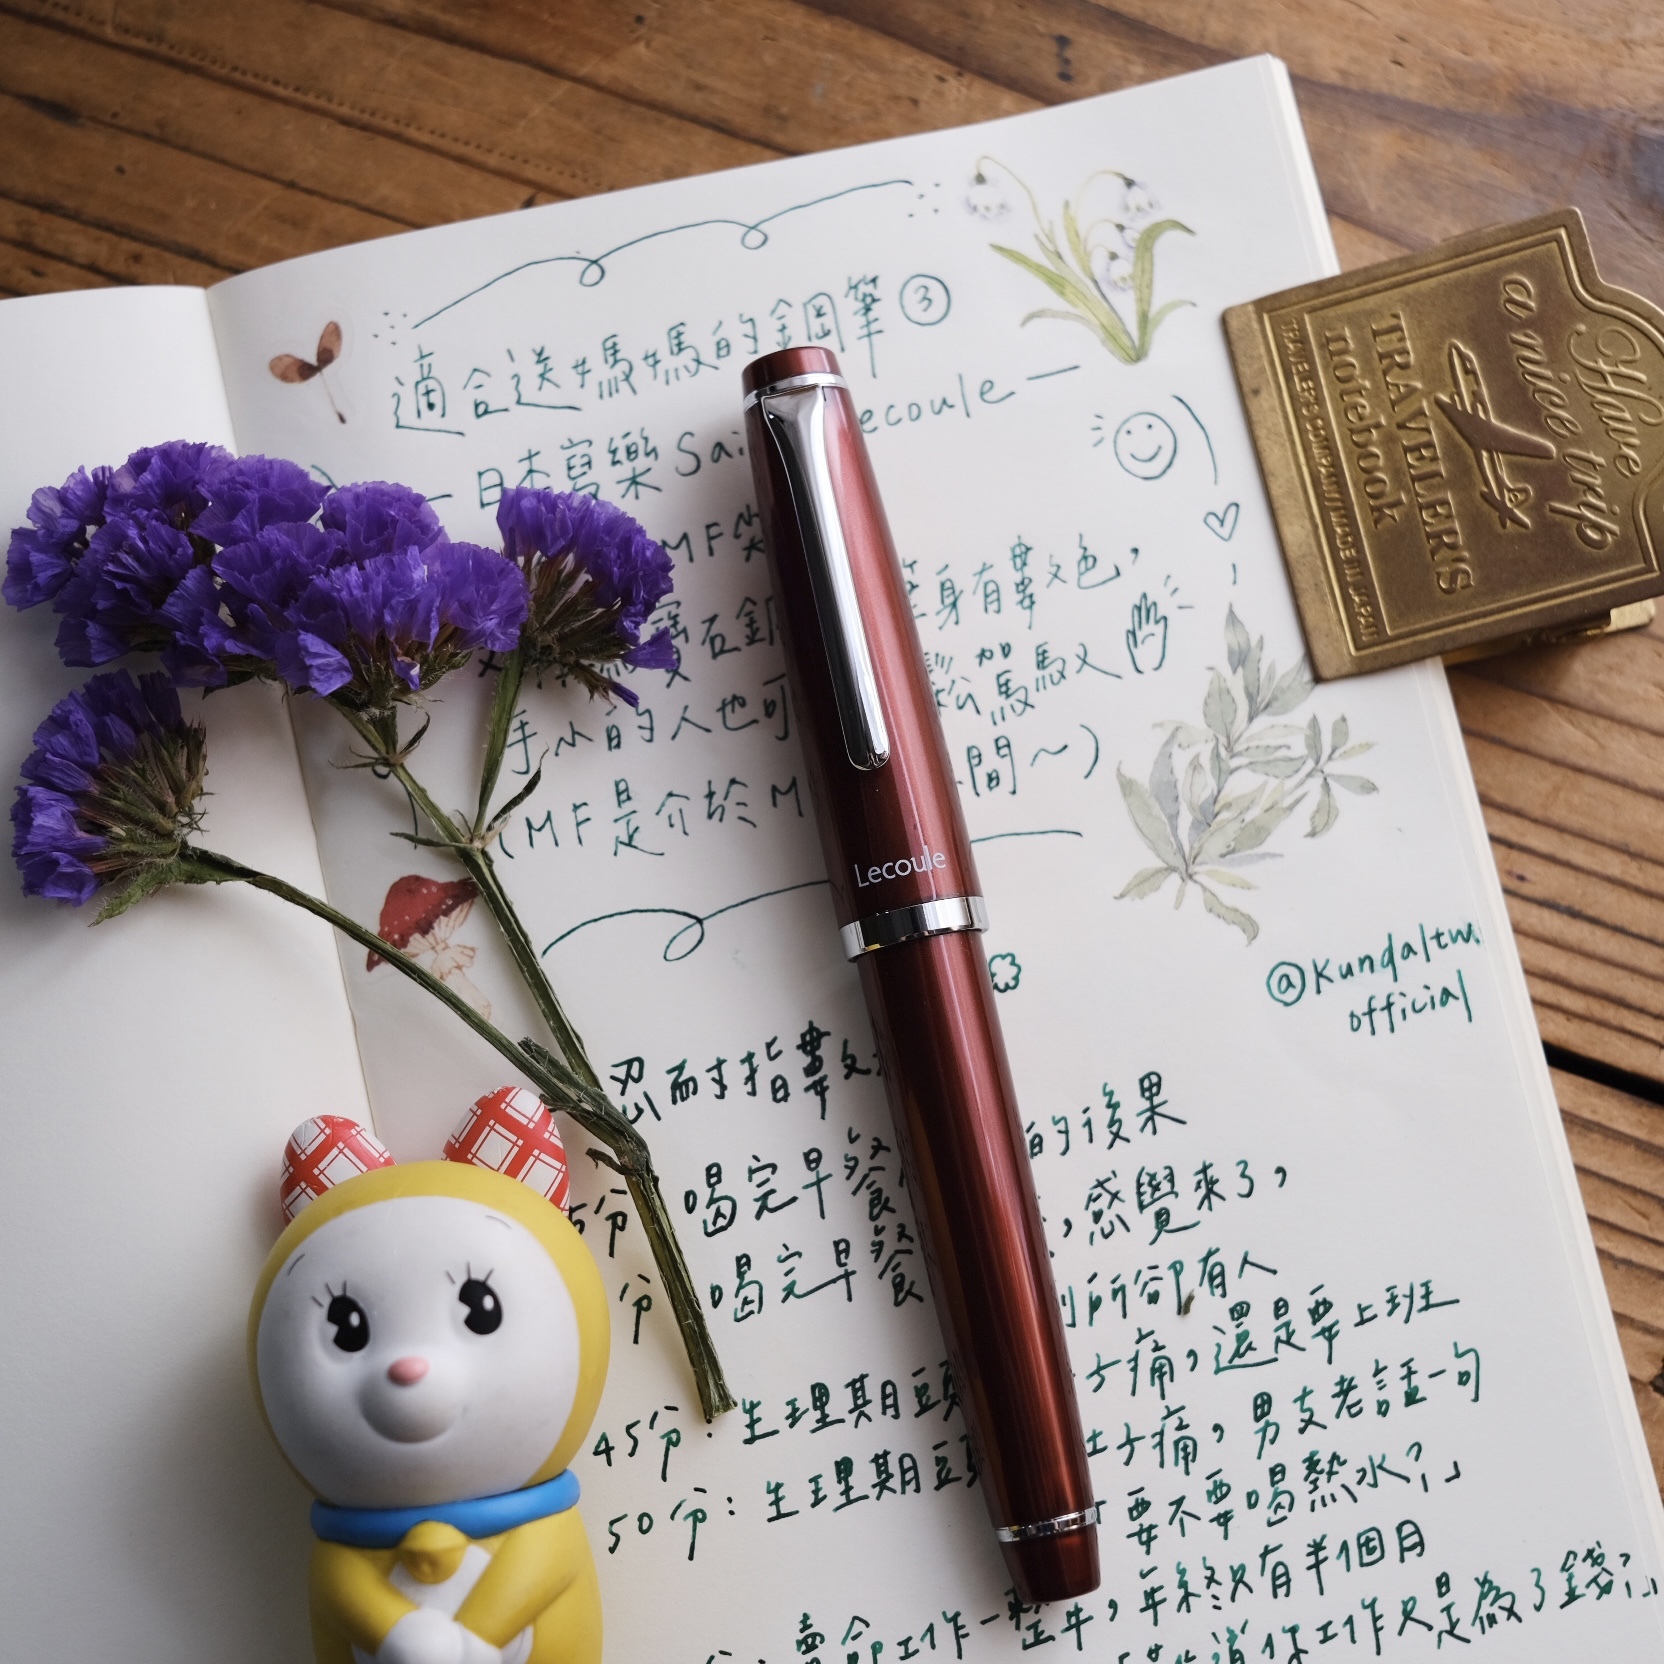 適合送媽媽的鋼筆③
— 日本寫樂 Sai ecoule —
MF尖 筆身有數色,
寶石鋼 鬆駕馭又
手小的人也可
(MF是介於M 間~)
Lecoule
@Kundaltw.
official
忍耐指數 的後果
5分 喝完早餐 ,感覺來了,
分 喝完早餐 所卻有人
45分:生理期頭 痛,還是要上班
50分:生理期頭 痛,男友老話一句
「要不要喝熱水?」
賣命工作一整年,年終只有半個月
道你工作只是為了錢?」
Have
a nice trip
TRAVELER'S
notebook
TRAVELER'S COMPANY/MADE IN JAPAN